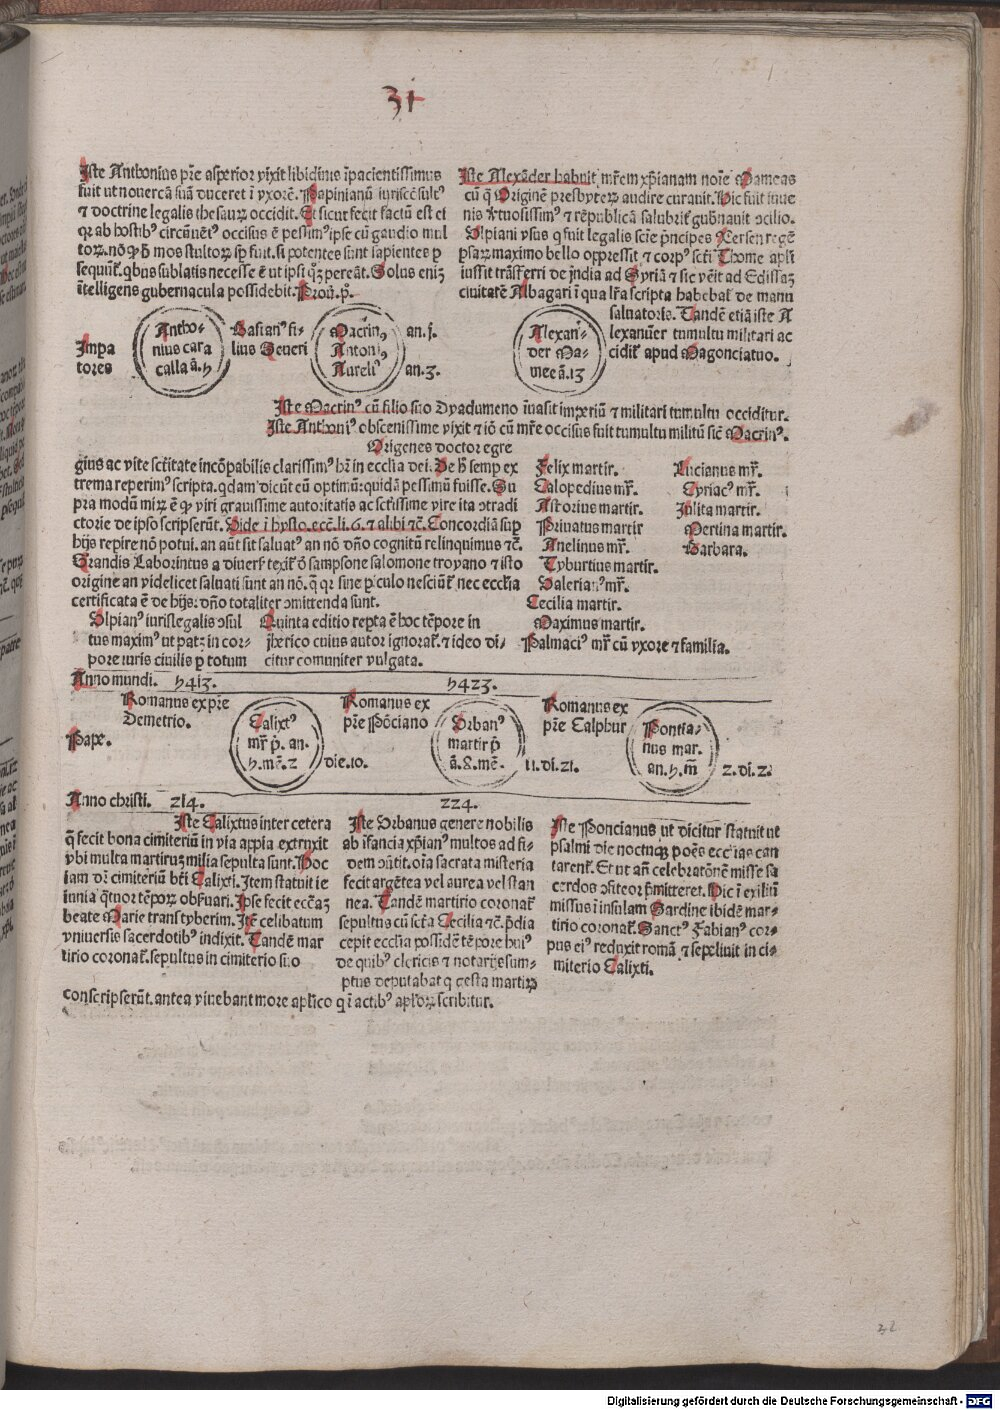 31
Iste Anthonius pr̄e asperior vixit libidinis īpacientissimus
fuit ut nouercā suā duceret ī vxorē. Papinianū iuriscēsultꝰ
⁊ doctrine legalis thesaurꝫ occidit. Et sicut fecit factū est ei
qr ab hostibꝰ circūuētꝰ occisus ē pessimꝰ ipse cū gaudio mul
toꝝ. nō qͥ hͥ mos stultoꝝ sp̄ fuit. si potentes sunt sapientes p
sequūt᷑. qbus sublatis necesse ē ut ipsi qꝫ pereāt. Solus eniꝫ
ītelligens gubernacula possidebit. Prou. p̄.
Iste Alexāder habuit mr̄em xp̄ianam noīe Mameas
cū q̄ Originē presbyteꝝ audire curauit. Hic fuit iuue
nis v̓tuosissimꝰ ⁊ rēpublicā salubrit᷑ gub̓nauit ↄcilio.
Vlpiani vsus q fuit legalis sciē p̓nceps Xersen regē
psaꝝ maximo bello oppressit ⁊ corpꝰ scti Thome apl̓i
iussit trāsferri de jndia ad Syriā ⁊ sic vēit ad Edissaꝫ
ciuitatē Albagari ī qua lr̄a scripta habebat᷑ de manu
saluatoris. Tandē etiā iste A
lexanuer tumultu militari ac
cidit᷑ apud Magonciatuo.
Impa
tores
Antho-
nius cara
calla ā. 5
Basianꝰ fi-
lius Seueri
Macrinꝰ
Antoniꝰ
Aureliꝰ
an. j.
an. 3.
Alexan-
der Ma-
mee ā. 13
Iste Macrinꝰ cū filio suo Dyadumeno īuasit imperiū ⁊ militari tumultu occiditur.
Iste Anthoniꝰ obscenissime vixit ⁊ iō cū mr̄e occisus fuit tumultu militū sic̄ Macrinꝰ.
Origenes doctor egre
gius ac vite sctītate incōpabilis clarissimꝰ hr̄ in ecclia dei. De hͦ semp ex
trema reperimꝰ scripta. qdam dicūt eū optimū: quidā pessimū fuisse. Su
pra modū miꝝ ē qͥ viri grauissime autoritatis ac sctissime vite ita ↄtradi
ctorie de ipso scripserūt. Vide ī hysto. ecc̄. li. 6. ⁊ alibi ⁊c̄. Concordiā sup
hijs repire nō potui. an aūt sit saluatꝰ an nō dn̄o cognitū relinquimus ⁊c̄.
Grandis Laborintus a diuersꝭ texit᷑ ō sampsone salomone troyano ⁊ isto
origine an videlicet saluati sunt an nō. q̄ qr sine p̓culo nesciūt᷑ nec ecclia
certificata ē de hijs: dn̄o totaliter ↄmittenda sunt.
Vlpianꝰ iurislegalis ↄsul
tus maximꝰ ut patꝫ in cor-
pore iuris ciuilis p totum
Quinta editio repta ē hoc tēpore in
jherico cuius autor ignorat᷑. ⁊ ideo di-
citur comuniter vulgata.
Felix martir.
Calopedius mr̄.
Astorius martir.
Priuatus martir
Anelinus mr̄.
Tyburtius martir.
Valerianꝰ mr̄.
Cecilia martir.
Maximus martir.
Palmaciꝰ mr̄ cū vxore ⁊ familia.
Lucianus mr̄.
Cyriacꝰ mr̄.
Julita martir.
Mertina martir.
Barbara.
Anno mundi. 5413. 5423.
Pape.
Romanus ex pr̄e
Demetrio.
Calixtꝰ
mr̄ p̄. an.
5. mē. 2
die. 10.
Romanus ex
pr̄e Pōciano
Vrbanꝰ
martir p̄
ā. 8. mē.
11. di. 21.
Romanus ex
pr̄e Calphur
Pontia-
nus mar.
an. 5. m̄
2. di. 2.
Anno christi. 214. 224.
Iste Calixtus inter cetera
q̄ fecit bona cimiteriū in via appia extruxit
vbi multa martiruꝫ milia sepulta sunt. Hoc
iam dr̄ cimiteriū bt̄i Calixti. Item statuit ie
iunia q̓tuor tēpoꝝ obs̓uari. Ipse fecit ecc̄aꝫ
beate Marie trans tyberim. Itē celibatum
vniuersis sacerdotibꝰ indixit. Tandē mar
tirio coronat᷑. sepultus in cimiterio suo
Iste Vrbanus genere nobilis
ab īfancia xp̄ianꝰ multos ad fi-
dem ↄūtit. oīa sacrata misteria
fecit argētea vel aurea vel stan
nea. Tandē martirio coronat᷑
sepultus cū scta Cecilia ⁊c̄. p̄dia
cepit ecclia possidē tēpore huiꝰ
de quibꝰ clericis ⁊ notarijs sum-
ptus deputabat q gesta martiꝝ
conscripserūt. antea viuebant more apl̓ico qͥ ī actibꝰ apl̓oꝝ scribitur.
Iste Poncianus ut dicitur statuit ut
psalmi die noctuqꝫ p oēs ecclīas can
tarent᷑. Et ut an̄ celebratōnem misse sa
cerdos ↄfiteor p̄mitteret. Hic ī exiliū
missus ī insulam Sardine ibidē mar-
tirio coronat᷑. Sanctꝰ Fabianꝰ cor-
pus eiꝰ reduxit romā ⁊ sepeliuit in ci-
miterio Calixti.
32
Digitalisierung gefördert durch die Deutsche Forschungsgemeinschaft - DFG